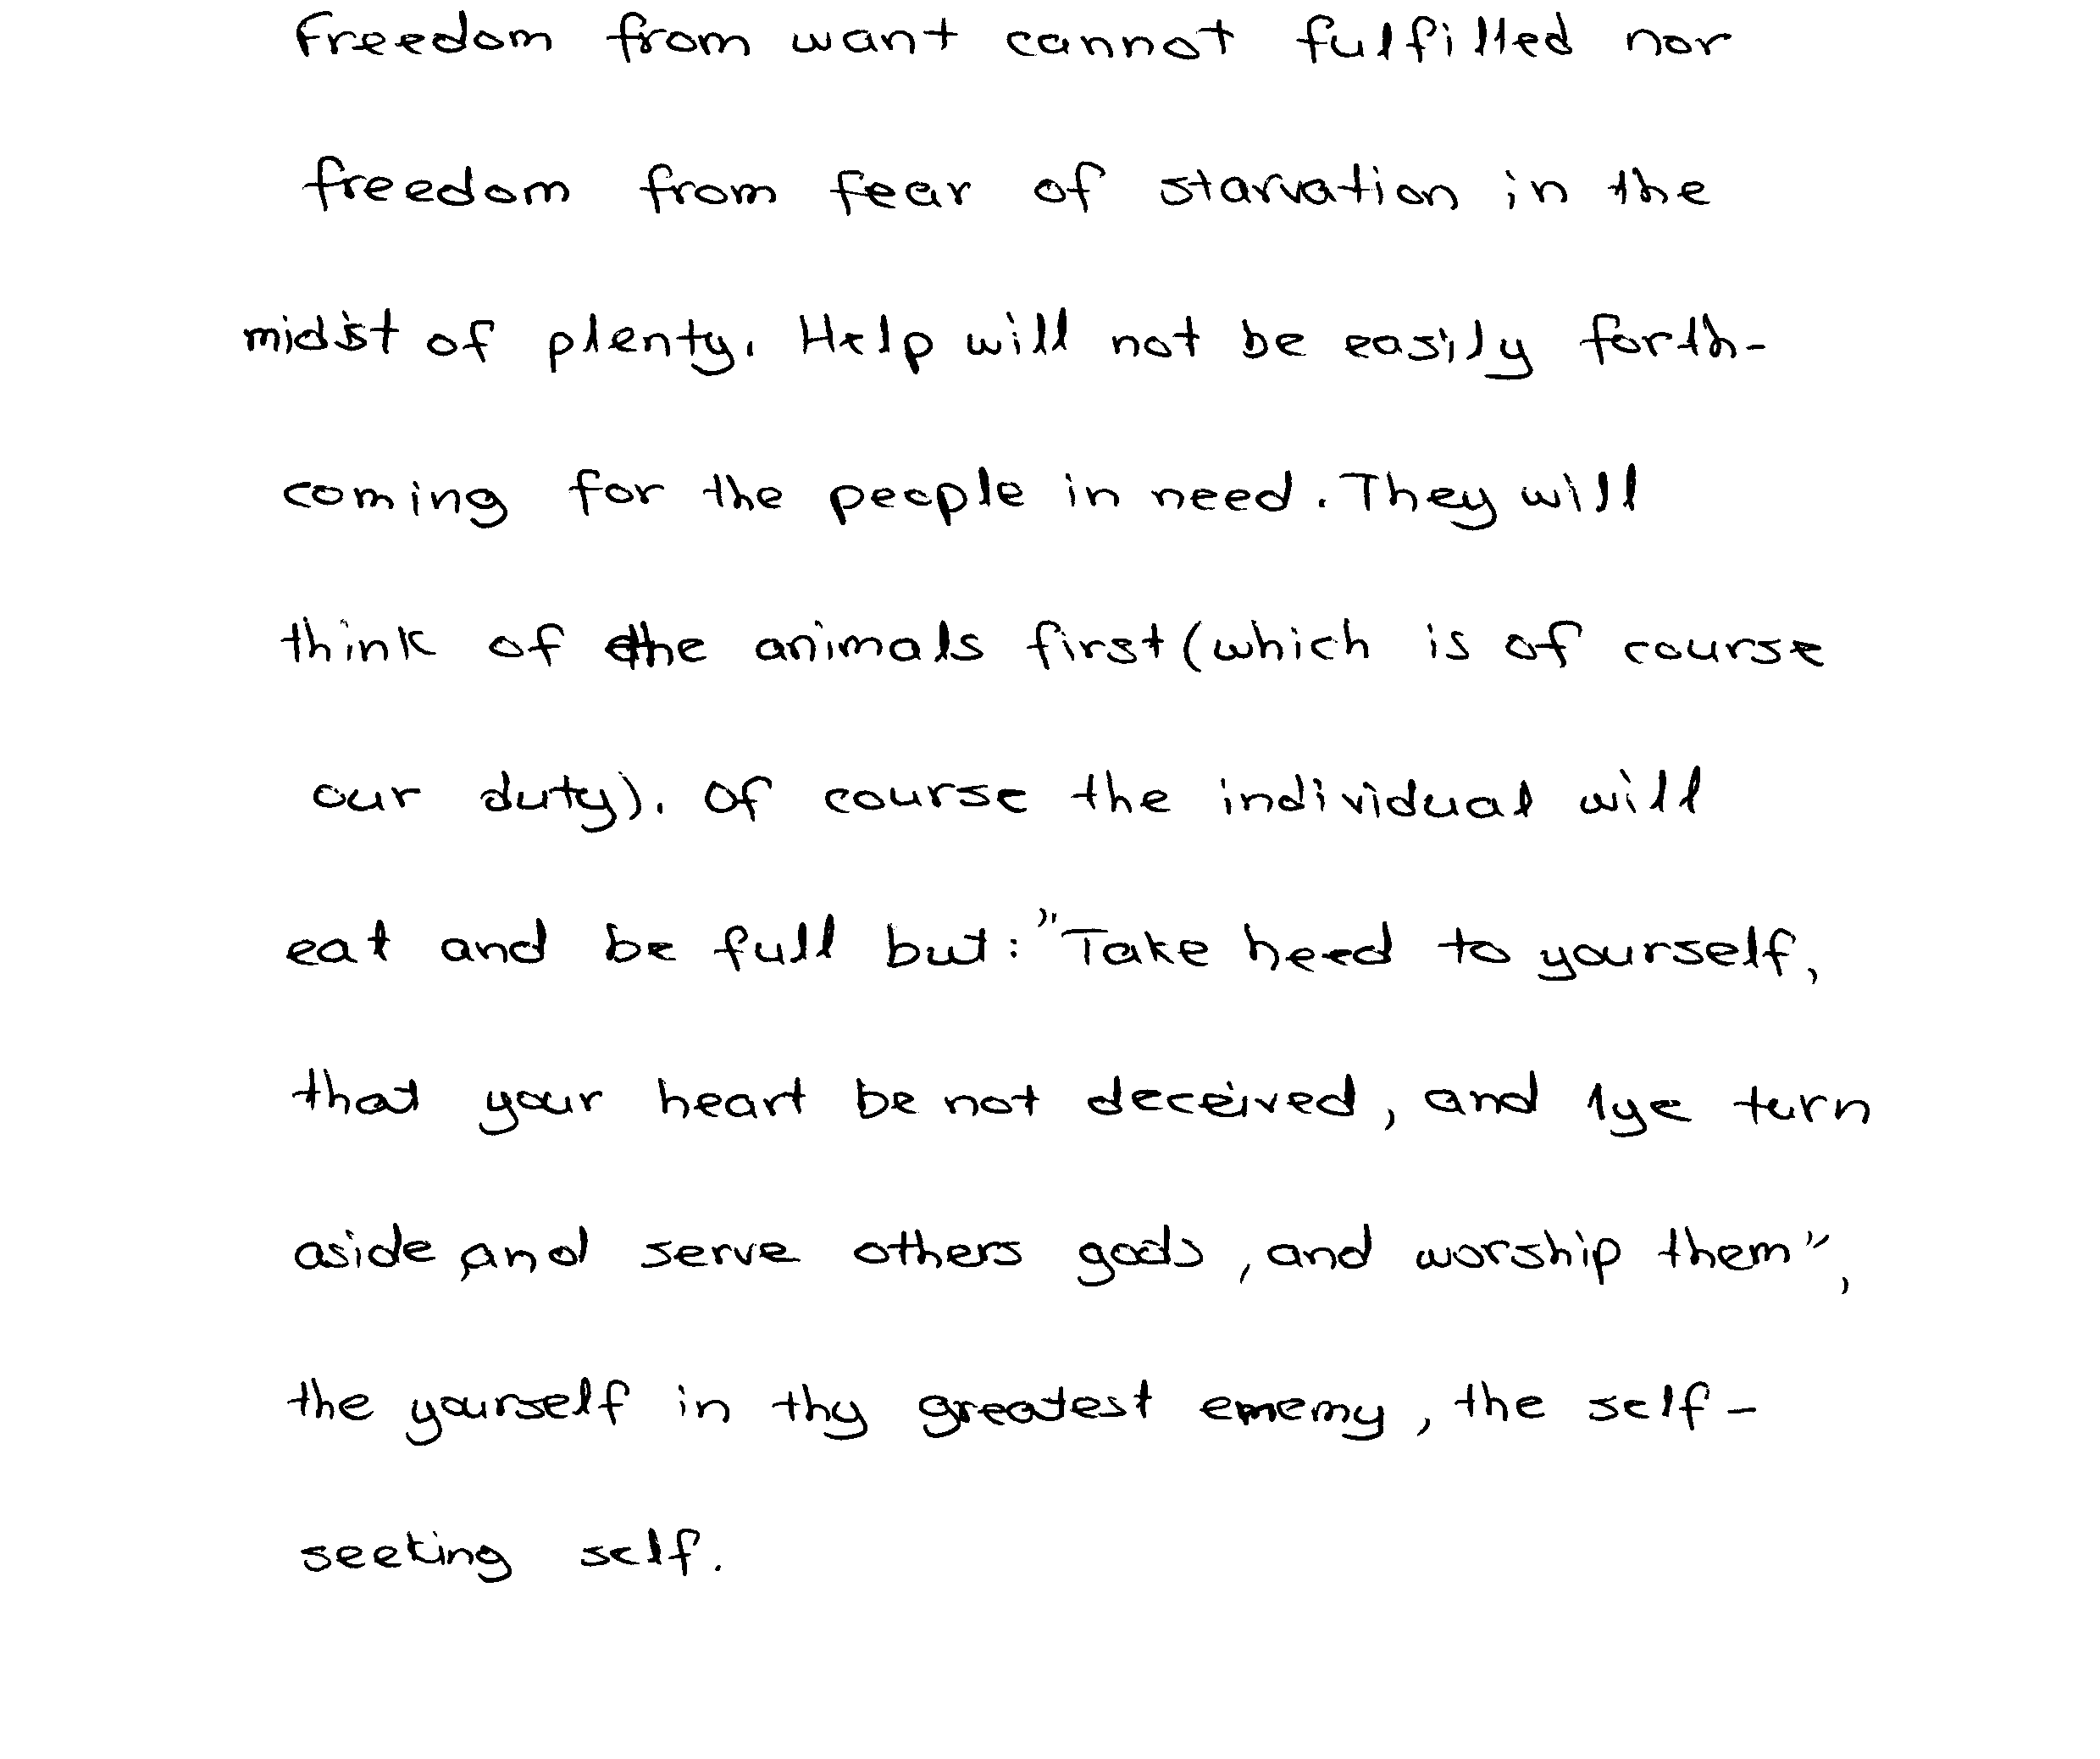 Freedom from want cannot fulfilled nor
freedom from fear of starvation in the
midst of plenty. Help will not be easily forth-
coming for the people in need. They will
think of the animals first (which is of course
our duty). Of course the individual will
eat and be full but: "Take heed to yourself,
that your heart be not deceived, and 1ye turn
aside, and serve others gods, and worship them",
the yourself in thy greatest ememy, the self-
seeking self.